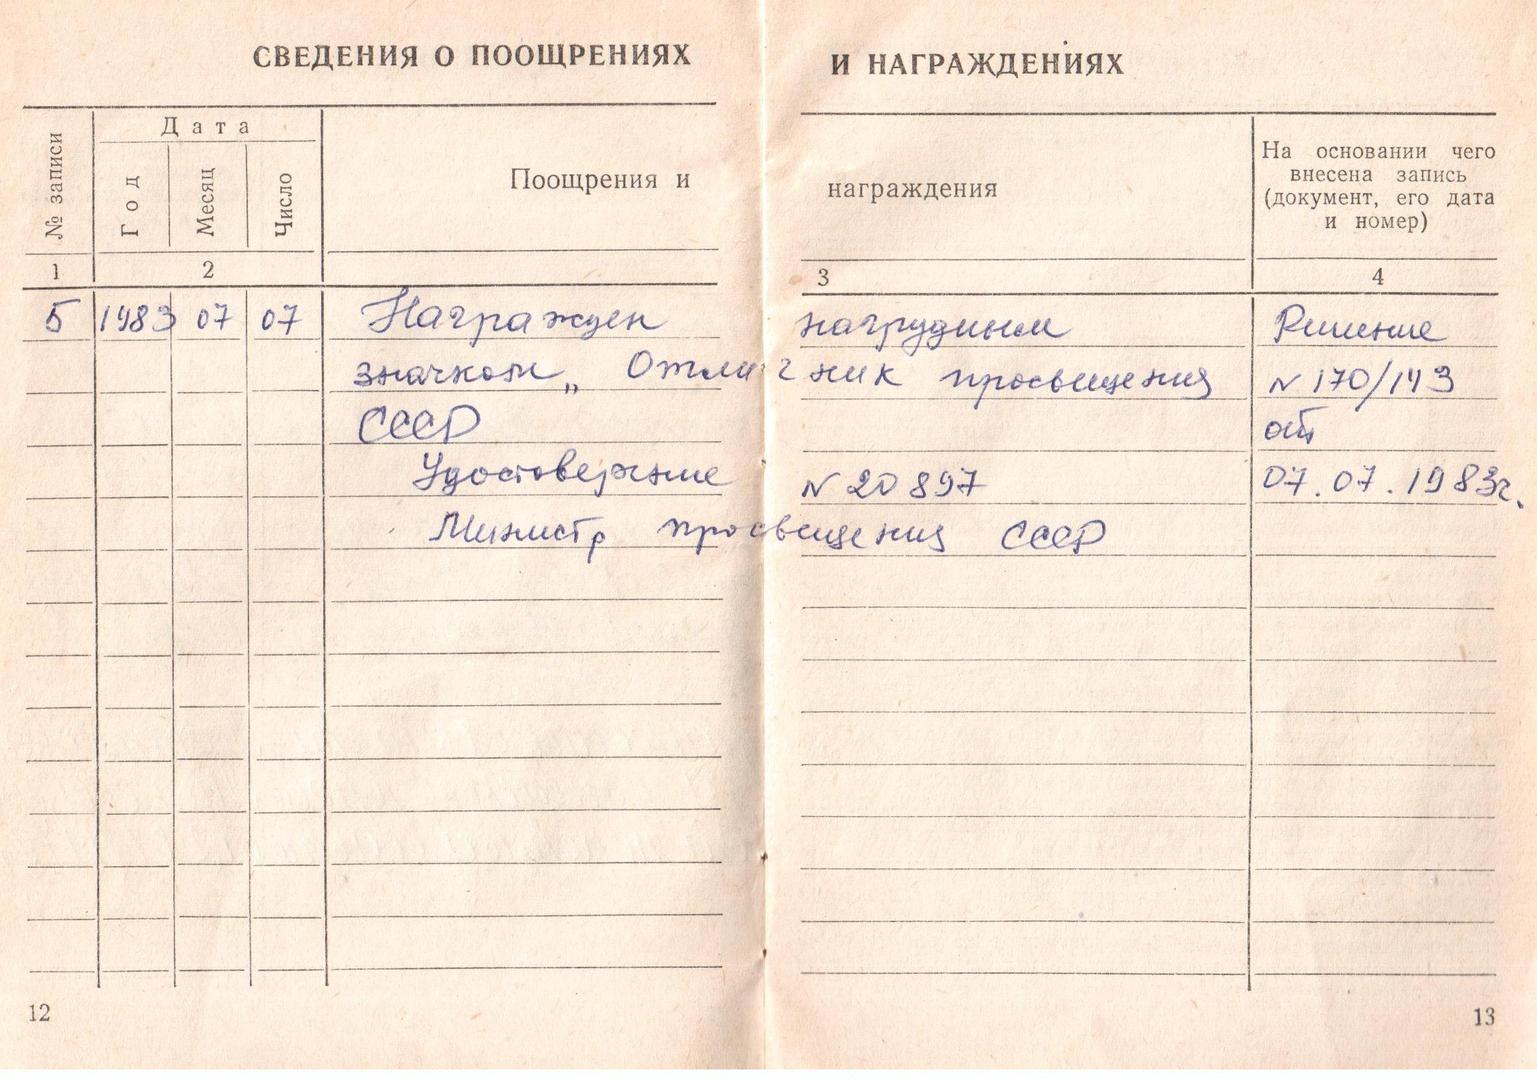 СВЕДЕНИЯ О ПООЩРЕНИЯХ И НАГРАЖДЕНИЯХ
№ записи
Дата
Год
Месяц
Число
Поощрения и награждения
На основании чего
внесена запись
(документ, его дата
и номер)
1 2 3 4
5 1983 07 07 Награжден нагрудным Решение
значком „ Отличник просвещения N 170/143
СССР от
Удостоверение N 20897 07.07.1983г.
Министр просвещения СССР
12 13